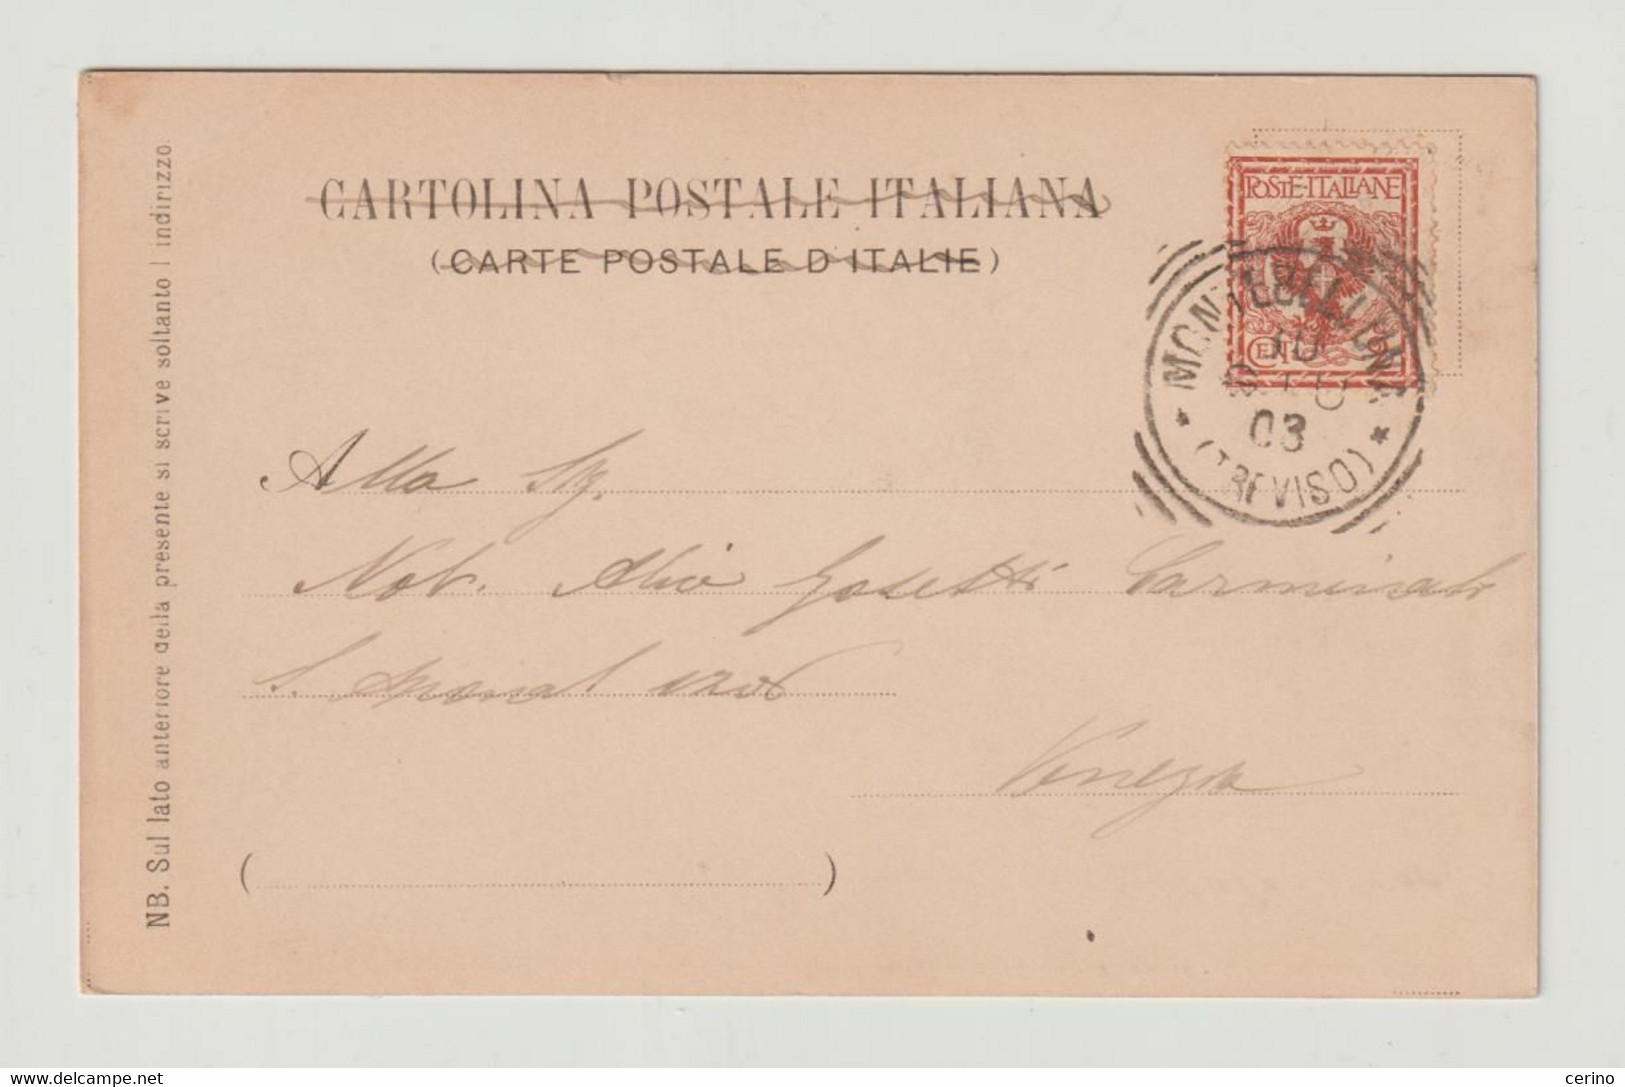 CARTOLINA POSTALE ITALIANA
(CARTE POSTALE D'ITALIE)
NB. Sul lato anteriore della presente si scrive soltanto l'indirizzo.
POSTE·ITALIANE
CENT 2
MONTEBELLUNA
10
03
* (TREVISO) *
Alla Sig.
Nob. Gosetti
S.
Venezia
delcampe.net
cerino